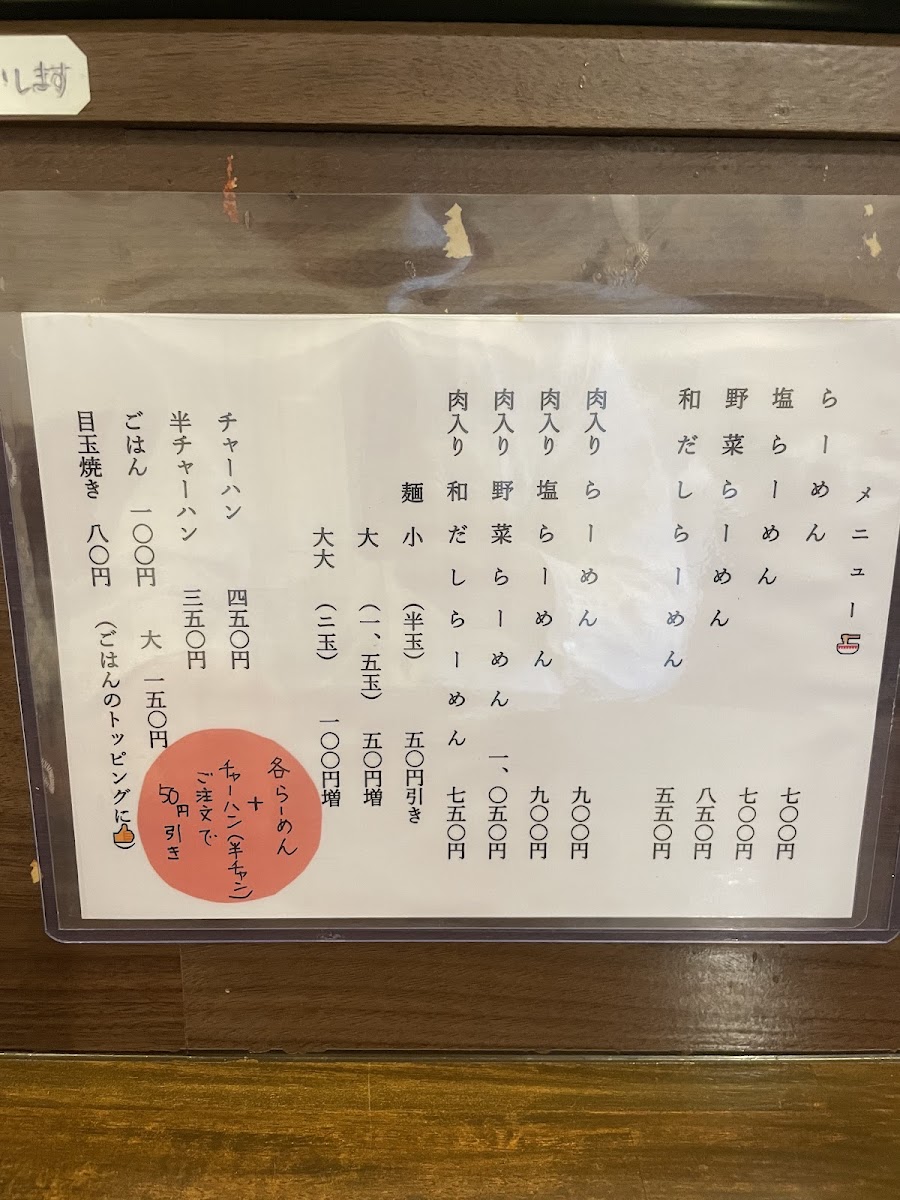 いします
メニュー
らーめん 七〇〇円
塩らーめん 七〇〇円
野菜らーめん 八五〇円
和だしらーめん 五五〇円
肉入り らーめん 九〇〇円
肉入り 塩らーめん 九〇〇円
肉入り 野菜らーめん 一、〇五〇円
肉入り 和だしらーめん 七五〇円
麺 小 (半玉) 五〇円引き
大 (一、五玉) 五〇円増
大大 (二玉) 一〇〇円増
チャーハン 四五〇円
半チャーハン 三五〇円
ごはん 一〇〇円 大 一五〇円
目玉焼き 八〇円 (ごはんのトッピングに
各らーめん
+
チャーハン(半チャン)
ご注文で
50円引き